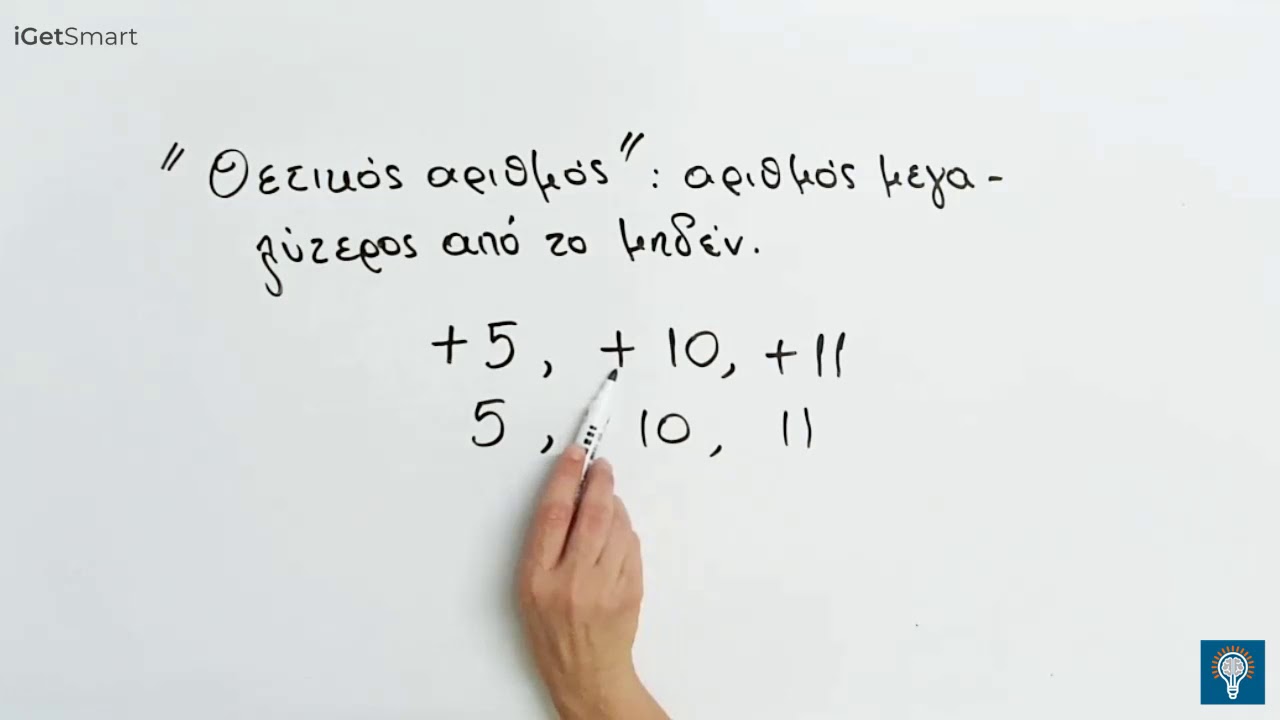 iGetSmart
" Θετικός αριθμός" : αριθμός μεγα-
λύτερος από το μηδέν.
+5, + 10, +11
5, 10, 11